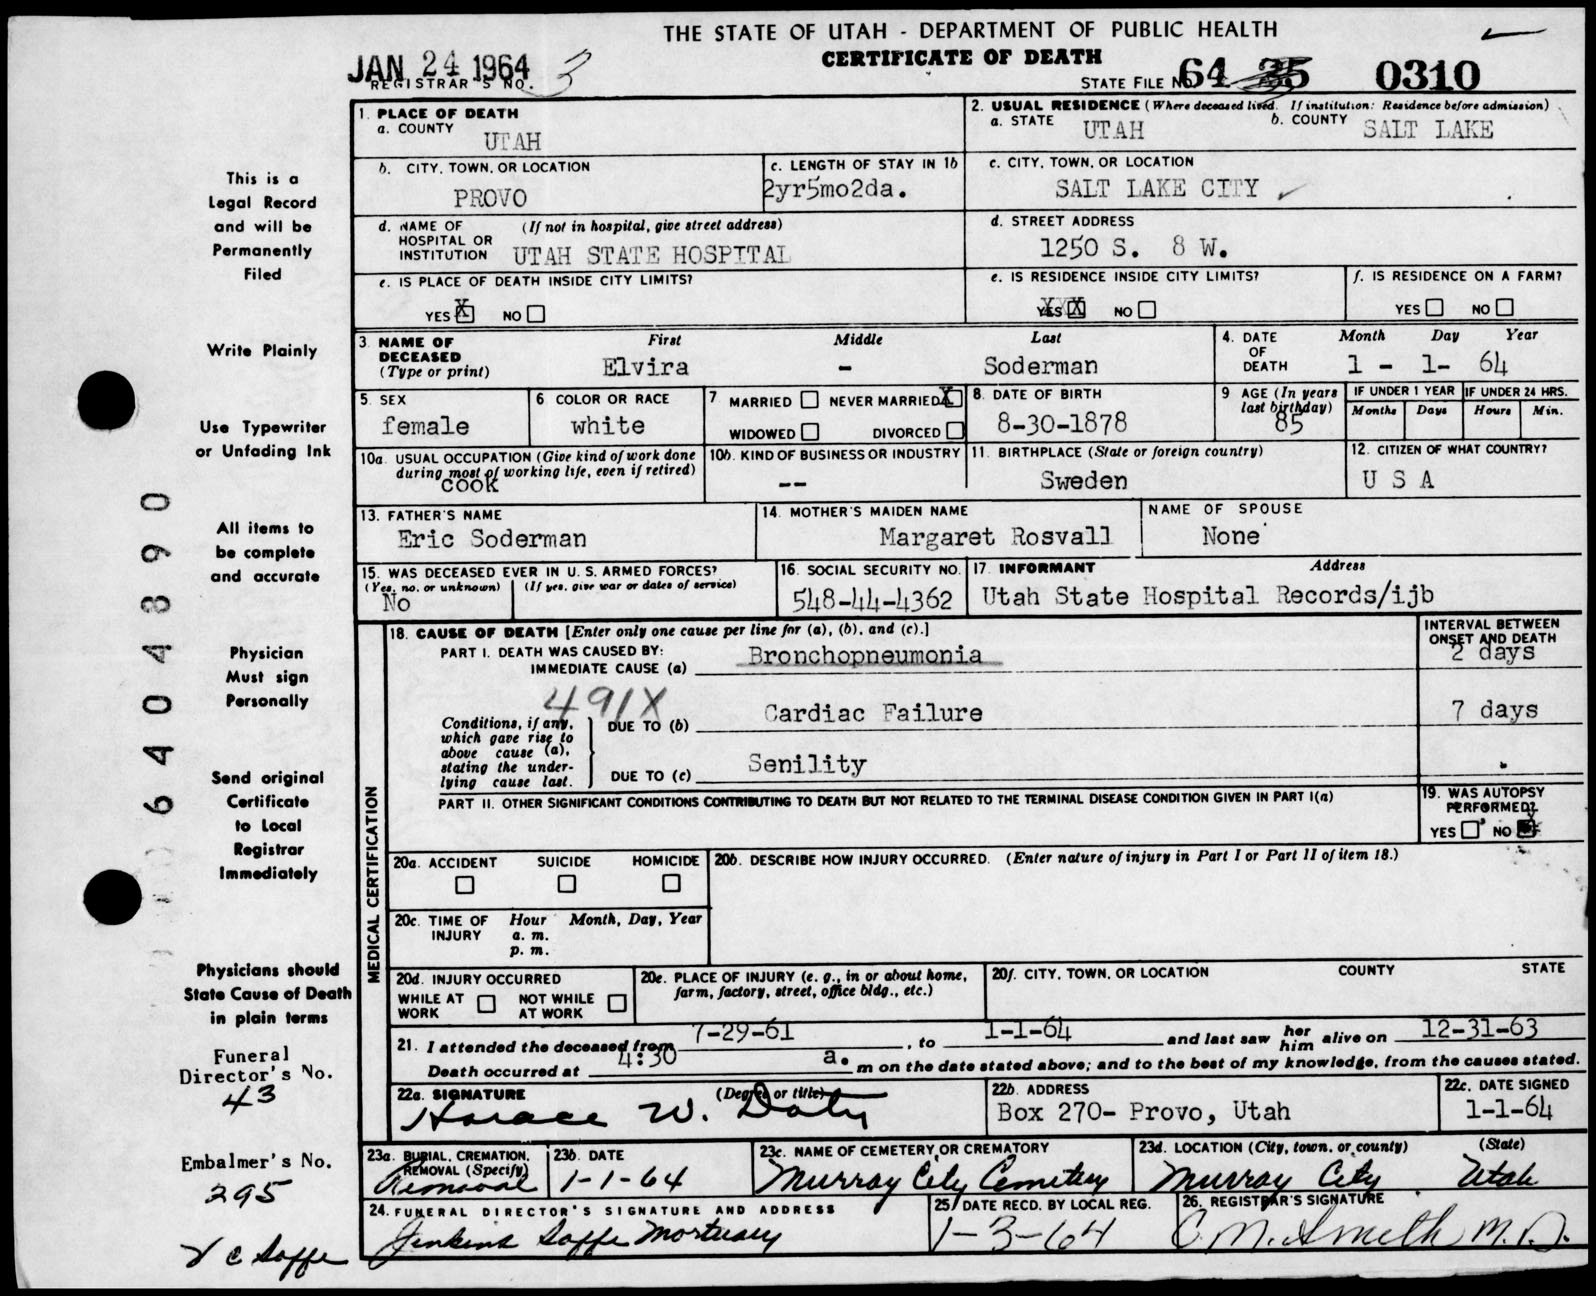 THE STATE OF UTAH - DEPARTMENT OF PUBLIC HEALTH
CERTIFICATE OF DEATH
JAN 24 1964
REGISTRAR'S NO. 3
STATE FILE NO. 64 35 0310
1. PLACE OF DEATH
a. COUNTY
UTAH
2. USUAL RESIDENCE (Where deceased lived. If institution: Residence before admission)
a. STATE UTAH b. COUNTY SALT LAKE
b. CITY, TOWN, OR LOCATION
PROVO
c. LENGTH OF STAY IN 1b
2yr5mo2da.
c. CITY, TOWN, OR LOCATION
SALT LAKE CITY
d. NAME OF HOSPITAL OR INSTITUTION (If not in hospital, give street address)
UTAH STATE HOSPITAL
d. STREET ADDRESS
1250 S. 8 W.
e. IS PLACE OF DEATH INSIDE CITY LIMITS?
YES X NO
e. IS RESIDENCE INSIDE CITY LIMITS?
YES X NO
f. IS RESIDENCE ON A FARM?
YES NO
3. NAME OF DECEASED (Type or print)
First Middle Last
Elvira - Soderman
4. DATE OF DEATH
Month Day Year
1 - 1- 64
5. SEX
female
6 COLOR OR RACE
white
7 MARRIED NEVER MARRIED X
WIDOWED DIVORCED
8. DATE OF BIRTH
8-30-1878
9 AGE (In years last birthday)
85
IF UNDER 1 YEAR
Months Days
IF UNDER 24 HRS.
Hours Min.
10a. USUAL OCCUPATION (Give kind of work done during most of working life, even if retired)
cook
10b. KIND OF BUSINESS OR INDUSTRY
--
11. BIRTHPLACE (State or foreign country)
Sweden
12. CITIZEN OF WHAT COUNTRY?
U S A
13. FATHER'S NAME
Eric Soderman
14. MOTHER'S MAIDEN NAME
Margaret Rosvall
NAME OF SPOUSE
None
15. WAS DECEASED EVER IN U. S. ARMED FORCES?
(Yes, no, or unknown) (If yes, give war or dates of service)
No
16. SOCIAL SECURITY NO.
548-44-4362
17. INFORMANT Address
Utah State Hospital Records/ijb
MEDICAL CERTIFICATION
18. CAUSE OF DEATH [Enter only one cause per line for (a), (b), and (c).]
INTERVAL BETWEEN ONSET AND DEATH
PART I. DEATH WAS CAUSED BY:
IMMEDIATE CAUSE (a) Bronchopneumonia 2 days
491X
Conditions, if any, which gave rise to above cause (a), stating the underlying cause last.
DUE TO (b) Cardiac Failure 7 days
DUE TO (c) Senility
PART II. OTHER SIGNIFICANT CONDITIONS CONTRIBUTING TO DEATH BUT NOT RELATED TO THE TERMINAL DISEASE CONDITION GIVEN IN PART I(a)
19. WAS AUTOPSY PERFORMED?
YES NO X
20a. ACCIDENT SUICIDE HOMICIDE
20b. DESCRIBE HOW INJURY OCCURRED. (Enter nature of injury in Part I or Part II of item 18.)
20c. TIME OF INJURY Hour Month, Day, Year
a. m.
p. m.
20d. INJURY OCCURRED
WHILE AT WORK NOT WHILE AT WORK
20e. PLACE OF INJURY (e. g., in or about home, farm, factory, street, office bldg., etc.)
20f. CITY, TOWN, OR LOCATION COUNTY STATE
21. I attended the deceased from 7-29-61, to 1-1-64 and last saw her him alive on 12-31-63
Death occurred at 4:30 a. m on the date stated above; and to the best of my knowledge, from the causes stated.
22a. SIGNATURE (Degree or title)
Horace W. Doty
22b. ADDRESS
Box 270- Provo, Utah
22c. DATE SIGNED
1-1-64
23a. BURIAL, CREMATION, REMOVAL (Specify)
Removal
23b. DATE
1-1-64
23c. NAME OF CEMETERY OR CREMATORY
Murray City Cemetery
23d. LOCATION (City, town, or county) (State)
Murray City Utah
24. FUNERAL DIRECTOR'S SIGNATURE AND ADDRESS
Jenkins Soffe Mortuary
25. DATE RECD. BY LOCAL REG.
1-3-64
26. REGISTRAR'S SIGNATURE
C. M. Smith M. D.
This is a
Legal Record
and will be
Permanently
Filed
Write Plainly
Use Typewriter
or Unfading Ink
All items to
be complete
and accurate
Physician
Must sign
Personally
Send original
Certificate
to Local
Registrar
Immediately
Physicians should
State Cause of Death
in plain terms
Funeral
Director's No.
43
Embalmer's No.
295
V C Soffe
6404890